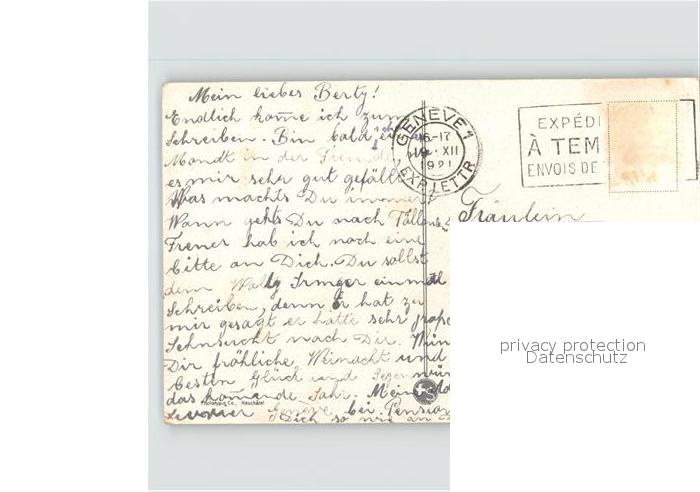 Mein liebes Berty!
Endlich kom̄e ich zum
Schreiben. Bin bald ein
Monat in der Fremde,
es mir sehr gut gefällt
Was machts Du immer
Wann gehts Du nach
Ferner hab ich noch eine
bitte an Dich. Du sollst
dem Wally Irmger einmal
Schreiben, denn er hat zu
mir gesagt er hätte sehr große
Sehnsucht nach Dir.
Dir fröhliche Weinacht und
besten Glück und Segen
das kom̄ende Jahr. Meine
Genève bei Pension
Dich so wie an
GENÈVE 1
16-17
XII
1921
EXP. LETTR
EXPÉDI
À TEM
ENVOIS DE
Fräulein
privacy protection
Datenschutz
Co., Neuchâtel